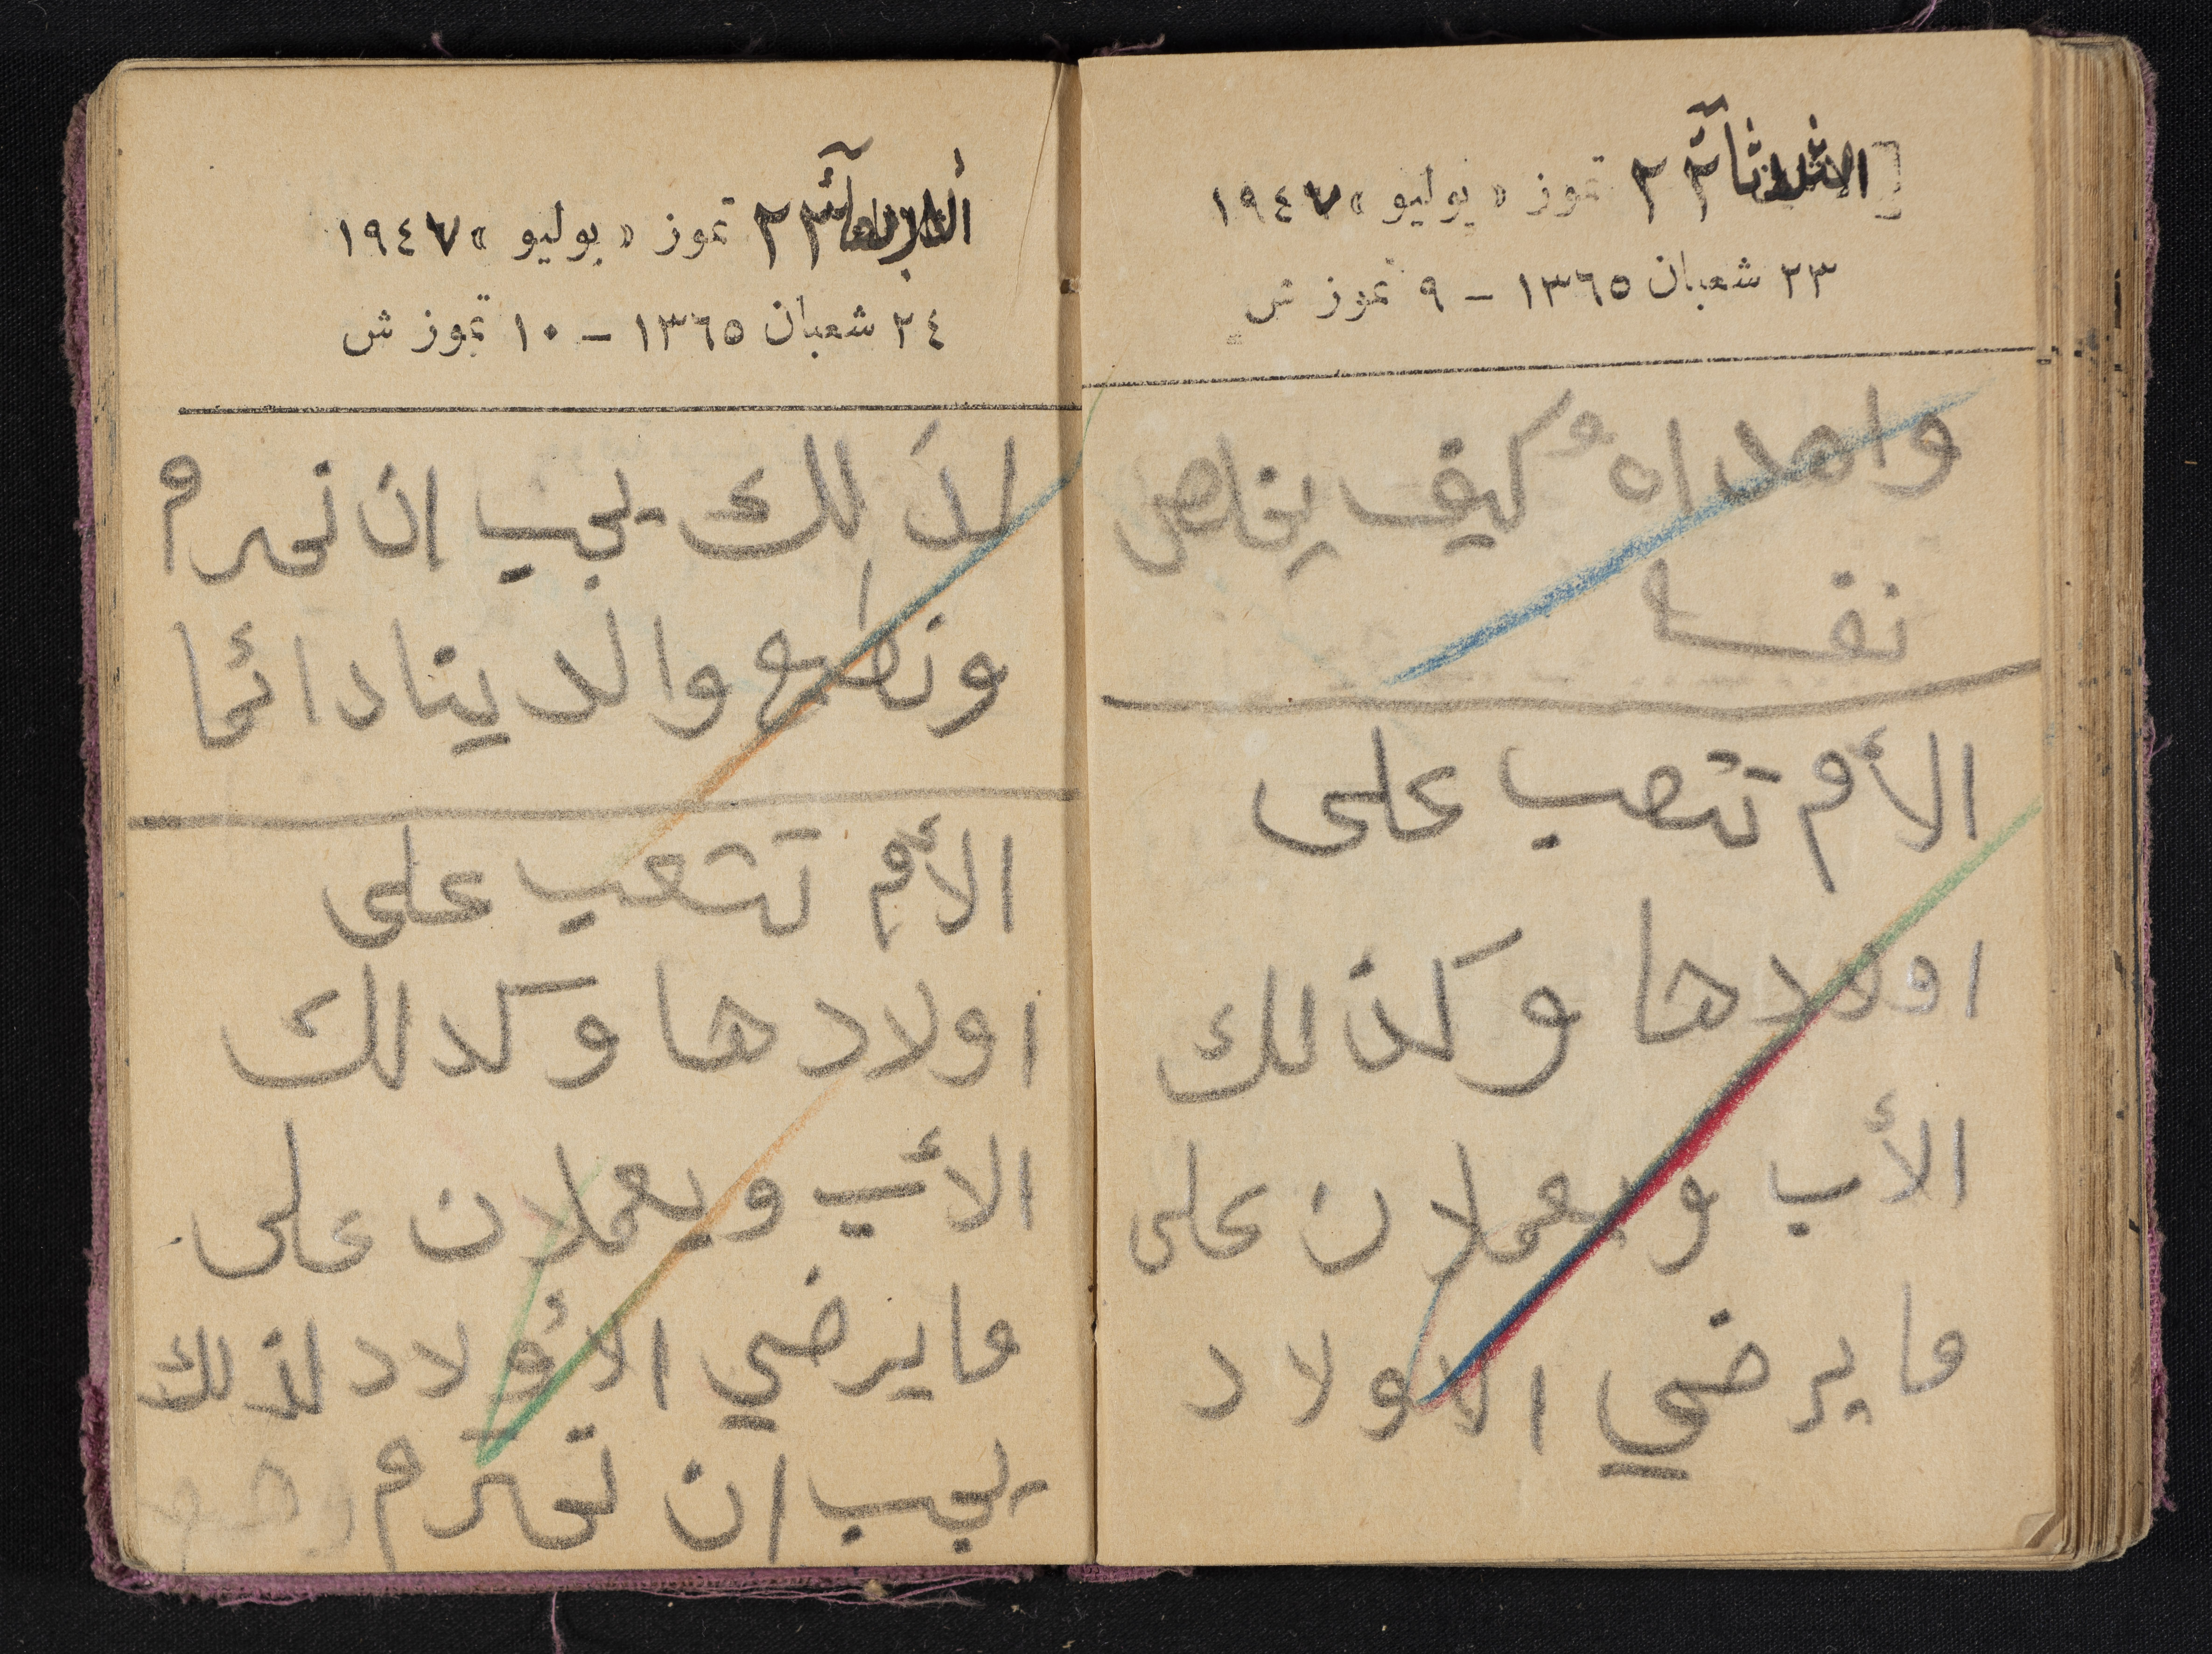 الثلاثاء ٢٢ تموز « يوليو » ١٩٤٧
٢٣ شعبان ١٣٦٥ – ٩ تموز ش
كيف يخلص
نفسه
الأم تتعب على
اولادها وكذلك
الأب ويعملان على
ما يرضي الاولاد
ألاربعآء ٢٣ تموز « يوليو » ١٩٤٧
٢٤ شعبان ١٣٦٥ – ١٠ تموز ش
لذَلك يجب ان نحرم
ونطيع والدينا دائما
الأم تتعب على
اولادها وكدلك
الأب ويعملان على
ما يرضي الأولاد لذلك
يجب ان نحترم